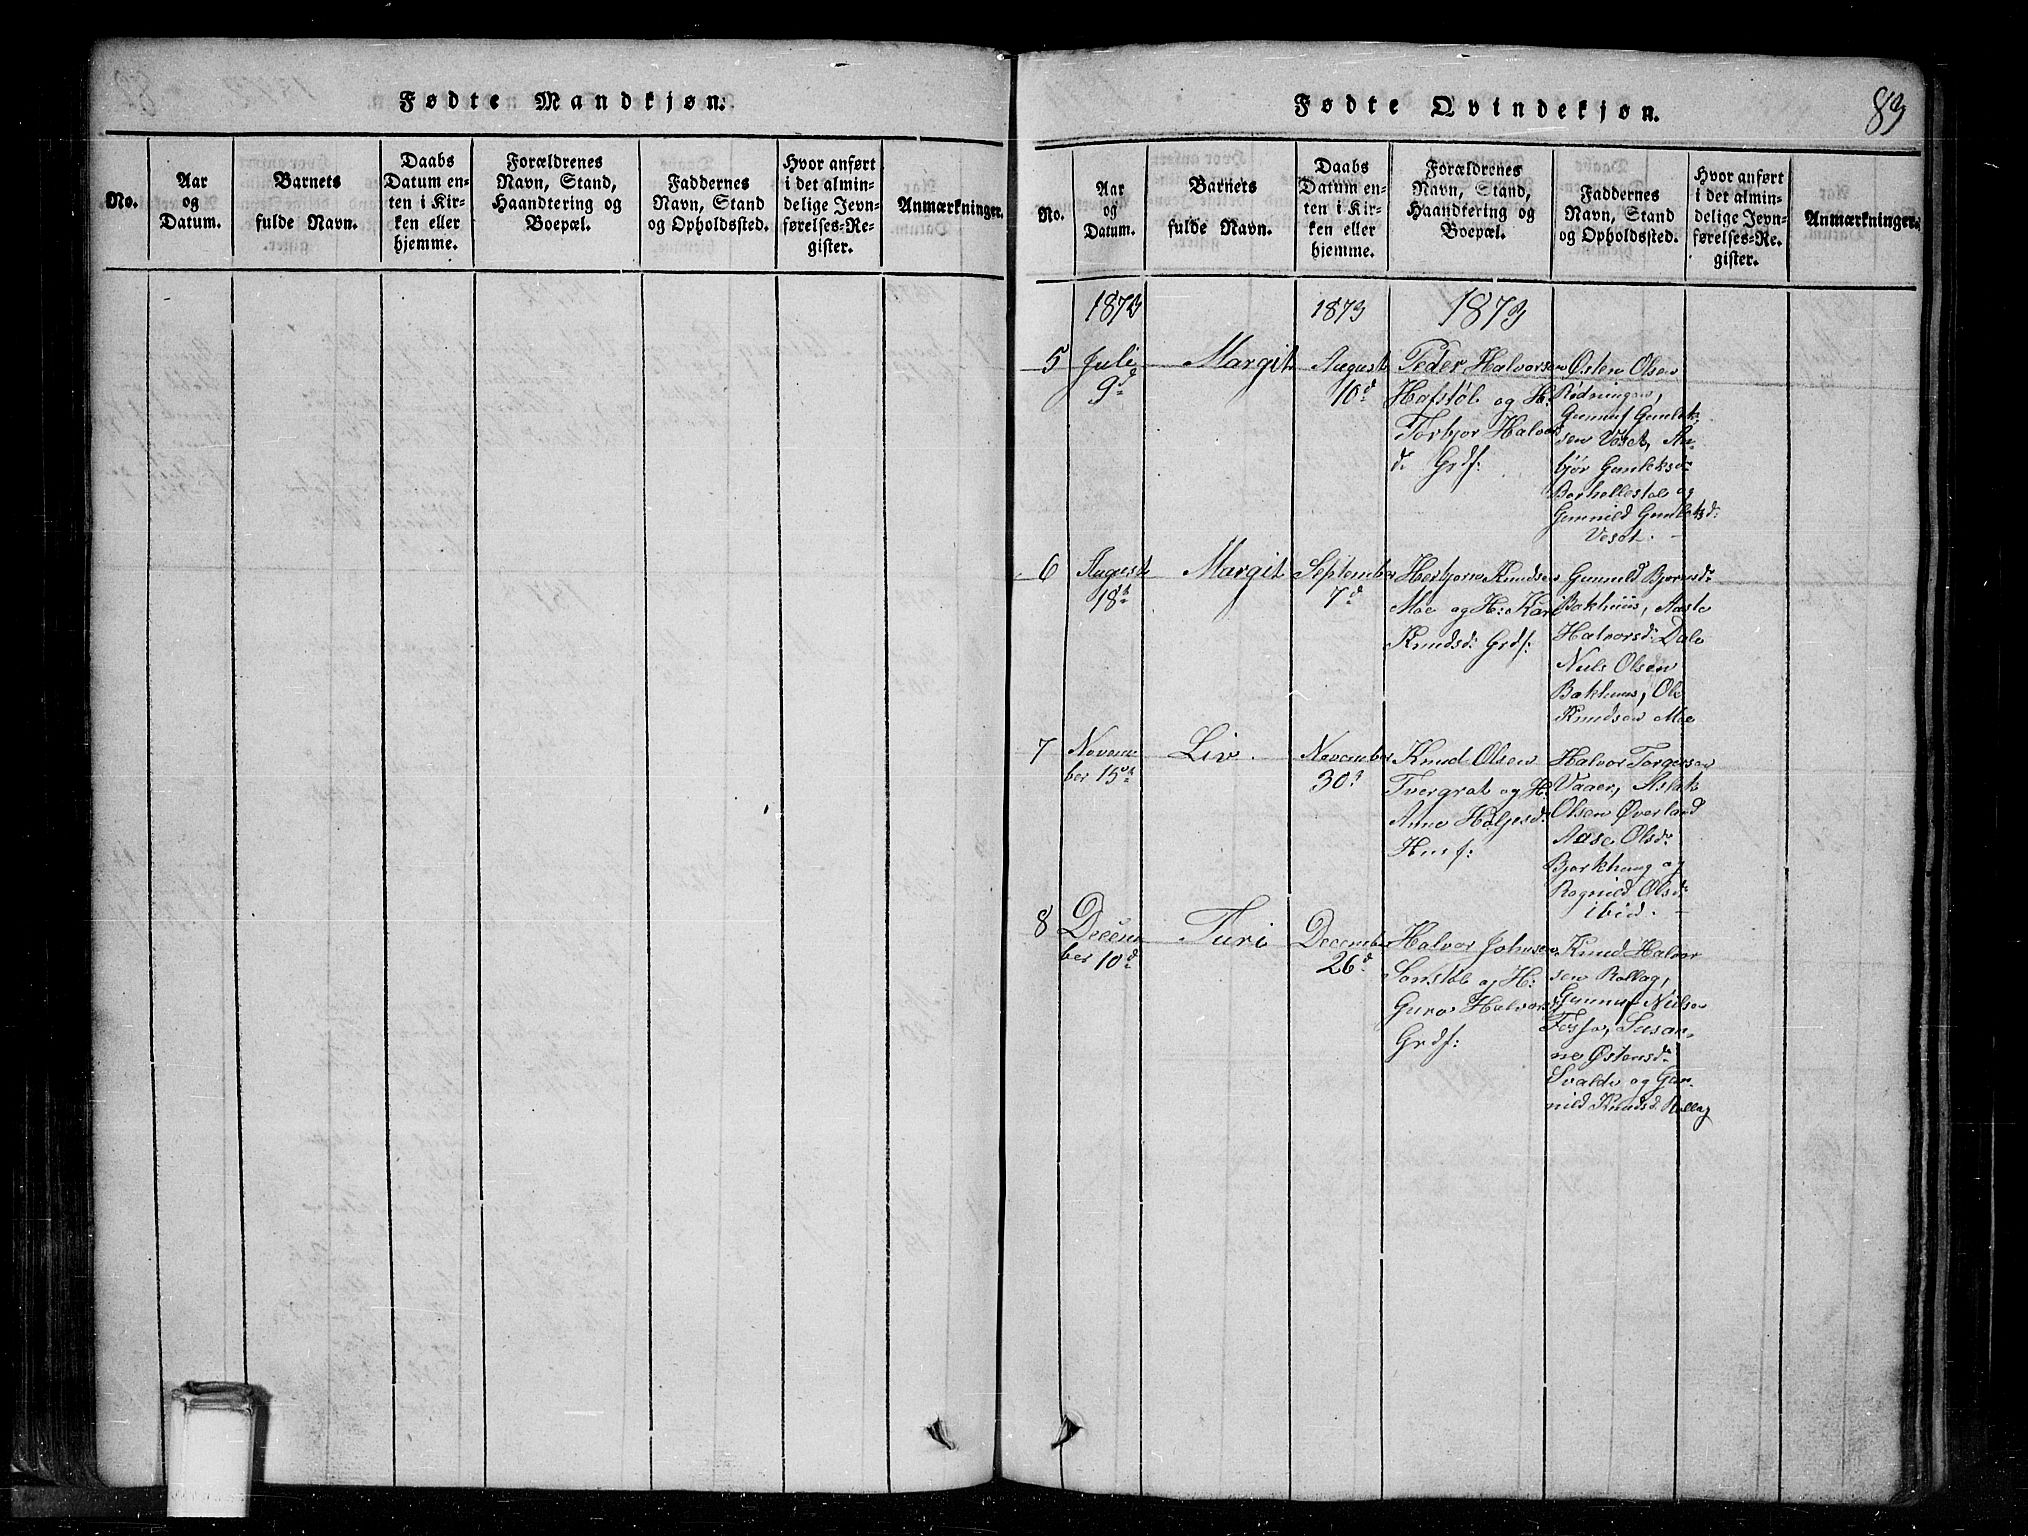 Fødte Mandkjøn.
No.
Aar
og
Datum.
Barnets
fulde Navn.
Daabs
Datum en-
ten i Kir-
ken eller
hjemme.
Forældrenes
Navn, Stand,
Haandtering og
Boepæl.
Faddernes
Navn, Stand
og Opholdssted.
Hvor anført
i det almin-
delige Jevn-
førelses-Re-
gister.
Anmærkninger.
Fødte Qvindekjøn.
83
No.
Aar
og
Datum.
Barnets
fulde Navn.
Daabs
Datum en-
ten i Kir-
ken eller
hjemme.
Forældrenes
Navn, Stand,
Haandtering og
Boepæl.
Faddernes
Navn, Stand
og Opholdssted.
Hvor anført
i det almin-
delige Jevn-
førelses-Re-
gister.
Anmærkninger.
1873
1873
1873
5
Juli
9d
Margit
August
10d
Peder Halvorsen
Hafstøl og H:
Torbjor Halvors
d: Grdf:
Østen Olsen
Rødningen,
Gunnuf Gunleik
sen Veset, An-
bjør Gunleksd:
Gunnild Gunleksd:
Veset. -
6
August
18d
Margit
September
7d
Herbjørn Knudsen
Moe og H: Kari
Knudsd: Grdf:
Gunnild Bjørnsd:
Bakhuus, Aaste
Halvorsd: Dale
Niels Olsen
Bakhuus, Ole
Knudsen Moe
7
Novem
ber 15d
Liv.
November
30d
Knud Olsen
Tvergrat og H:
Anne Helgesd:
Husf:
Halvor Torgersen
Vaaer, Aslak
Olsen Øverland
Aase Olsd:
Bjørkhaug og
Ragnild Olsd:
ibid. -
8
Decem
ber 10d
Turi
December
26d
Halvor Johnsen
Sonstøl og H:
Guro Halvorsd
Grdf:
Knud Halvor
sen Rollag,
Gunnuf Nielsen
Fosso, Susan-
ne Østensd:
Svalde og Gun-
nild Knudsd: Rollag